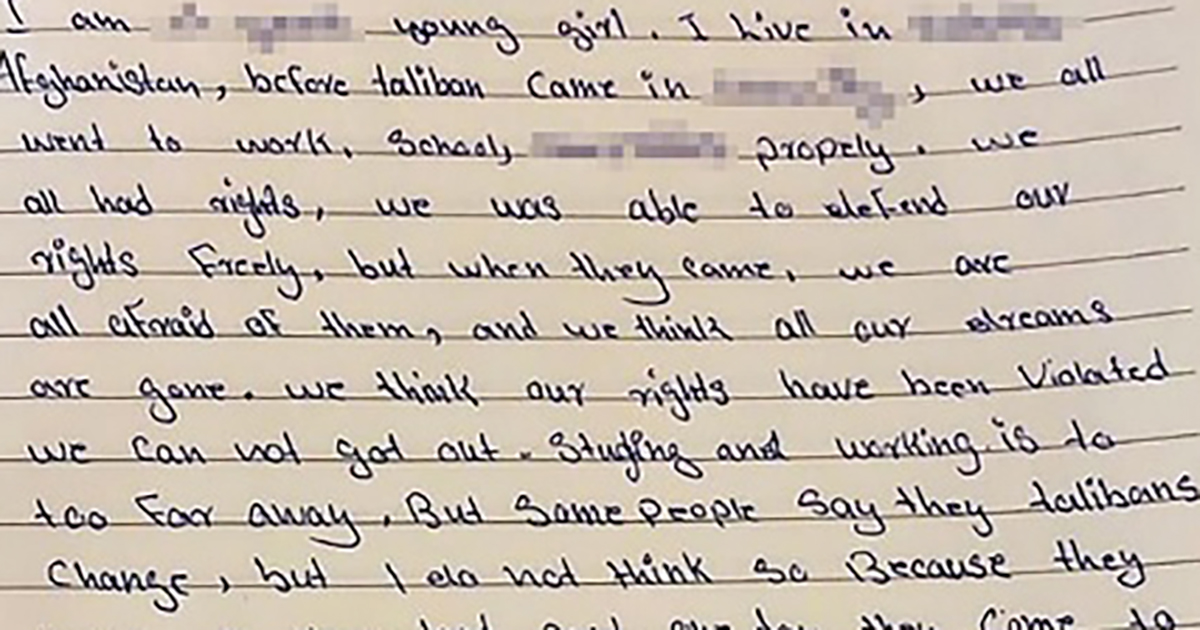 I am young girl. I Live in
Afghanistan, before taliban Came in , we all
went to work, School, propely. we
all had rights, we was able to defend our
rights Freely, but when they came, we are
all afraid of them, and we think all our dreams
are gone. we think our rights have been Violated
we can not got out. Studing and working is to
too Far away. But Some people Say they talibans
Change, but I do not think so Because they
they Come to